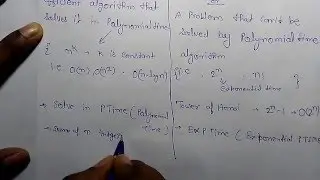 Efficient algorithm that
solves it in Polynomial time
{ n^k → k is constant
i.e. O(n), O(n²), O(n·logn) }
→ Solve in PTime (Polynomial
Time)
→ Sum of n integ
A Problem that can't be
solved by Polynomial time
algorithm
exponential time }
Tower of Hanoi → 2^n-1 → O(2^n)
→ EXPTime (Exponential PTime)